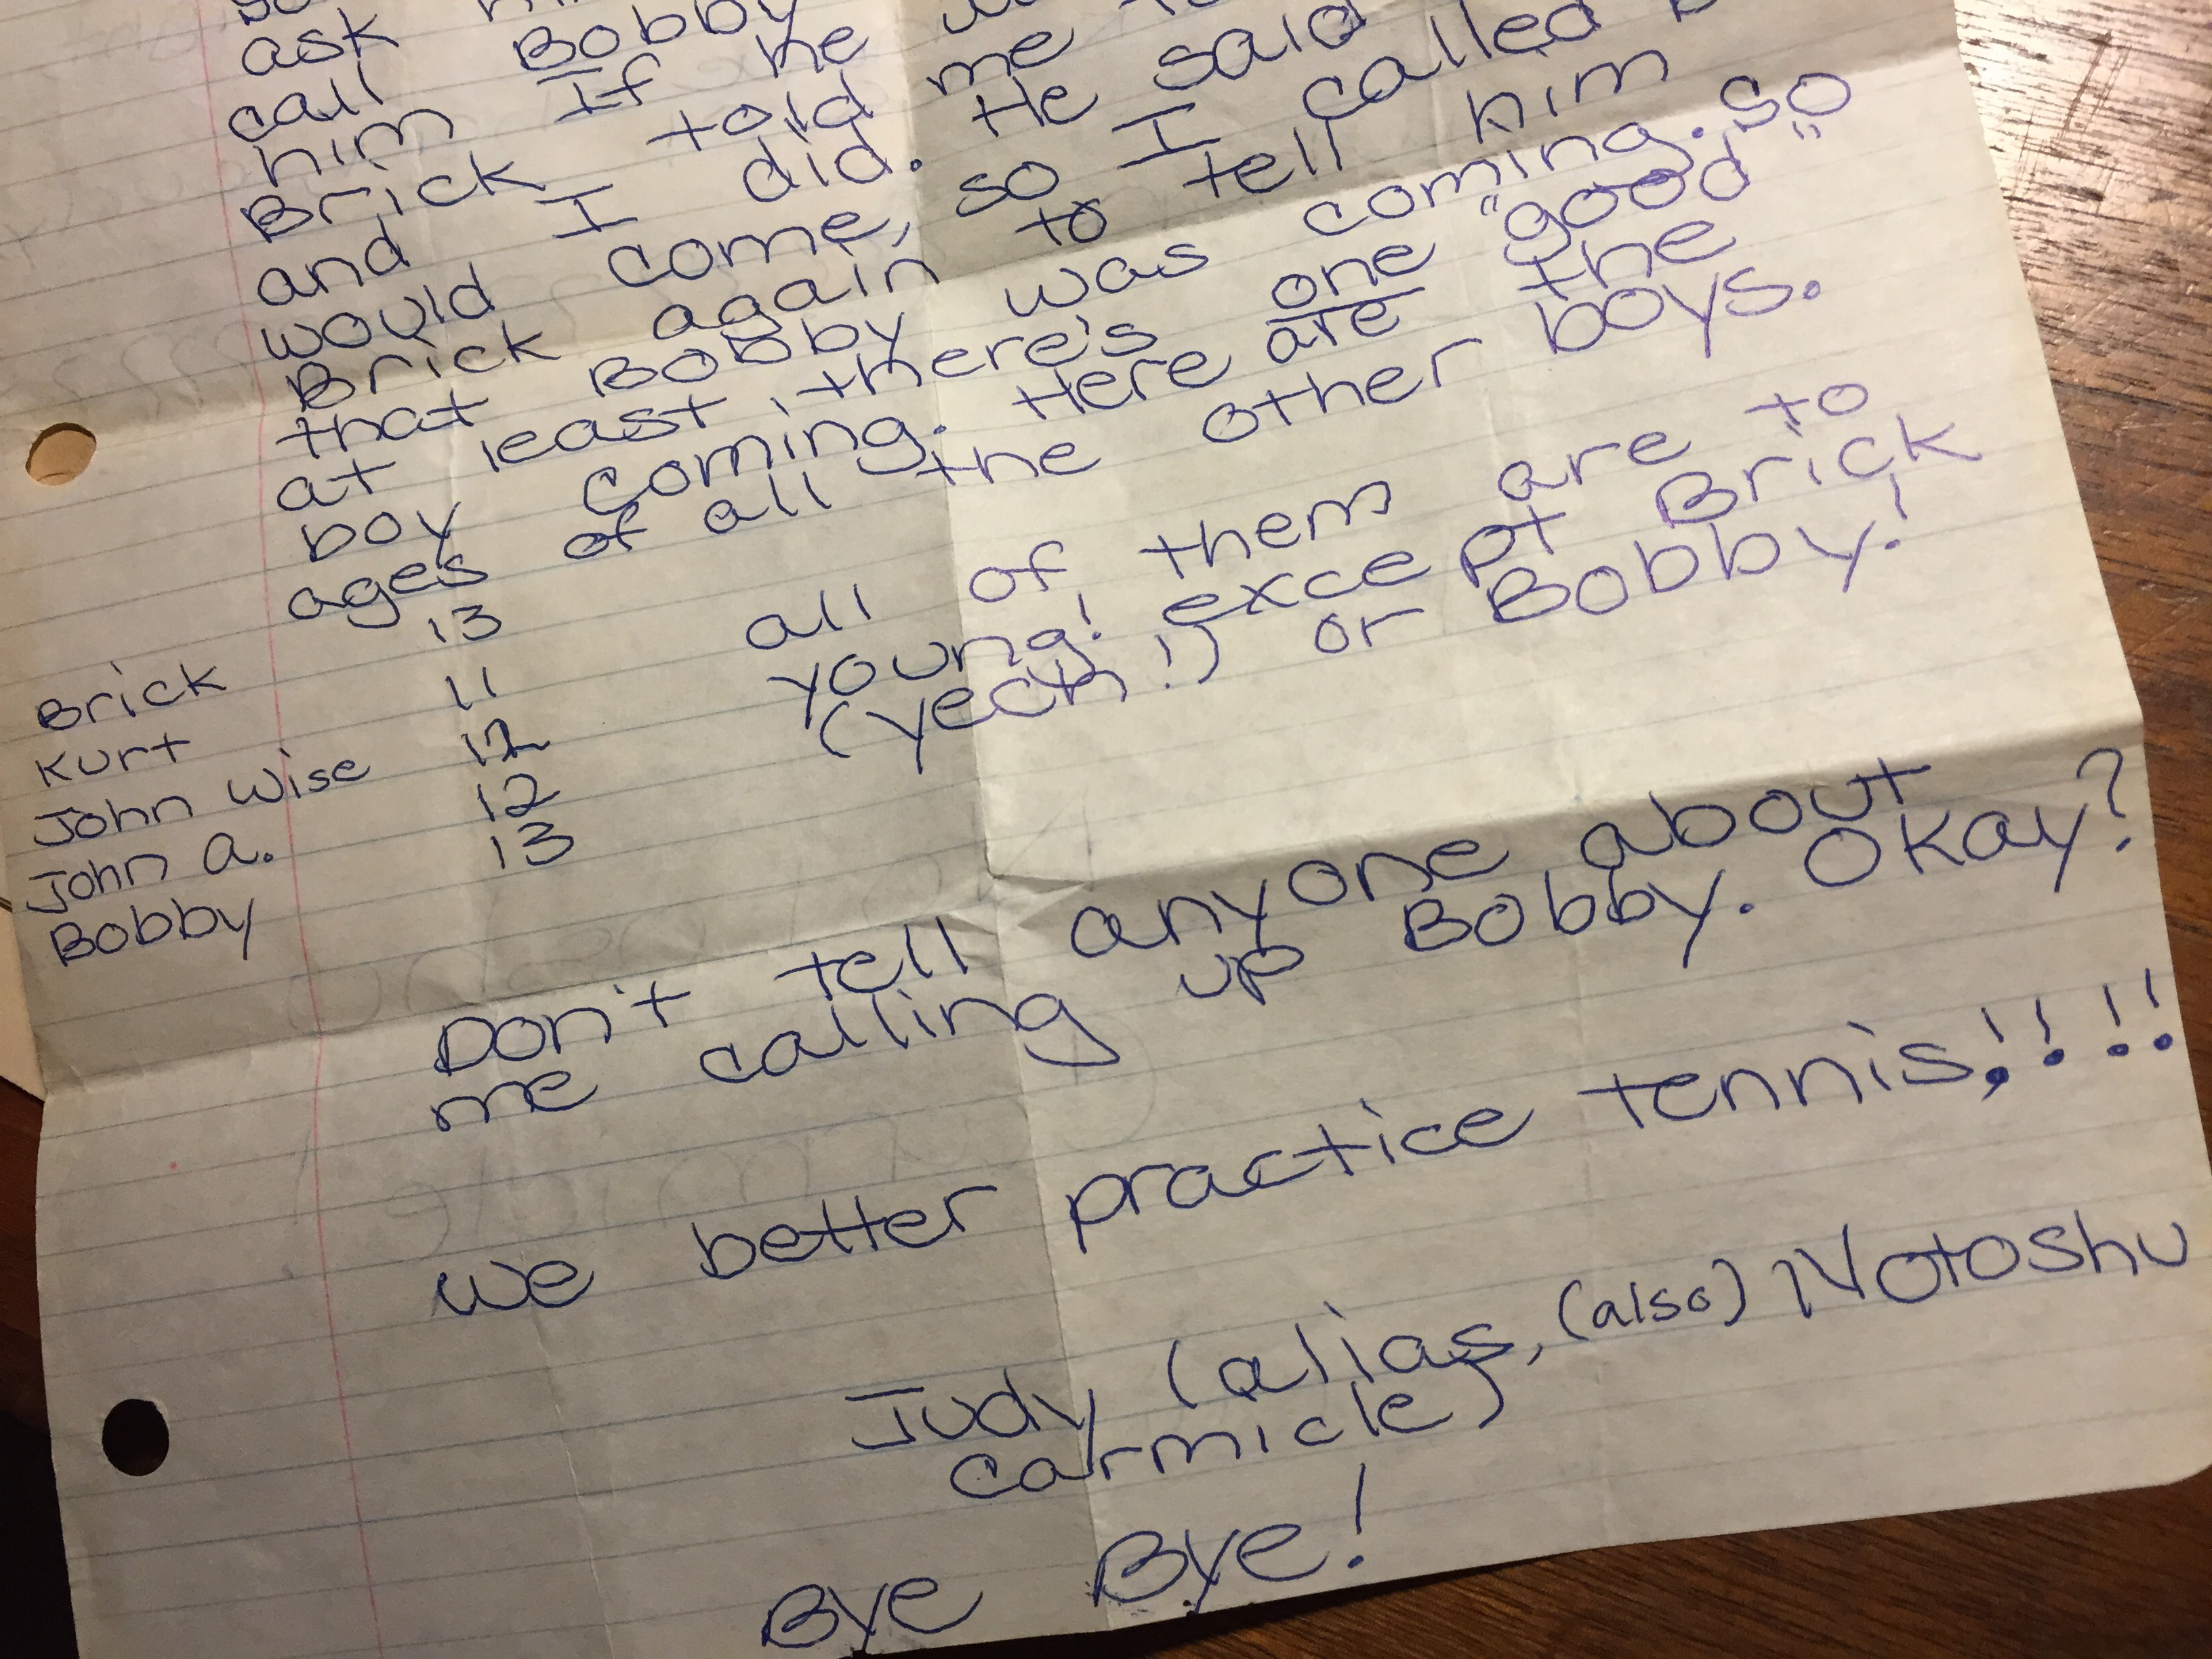 ask
call Bobby
him If he
Brick told me
and I did. He said
would come, so I called
Brick again to tell him
that Bobby was coming. so
at least there's one "good"
boy coming. Here are the
ages of all the other boys.
Brick 13
Kurt 11
John Wise 12
John a. 12
Bobby 13
all of them are to
young! except Brick
(yech!) or Bobby!
Don't tell anyone about
me calling up Bobby. Okay?
we better practice tennis!!!!
Judy (alias, (also) Notoshu
carmicle)
Bye Bye!